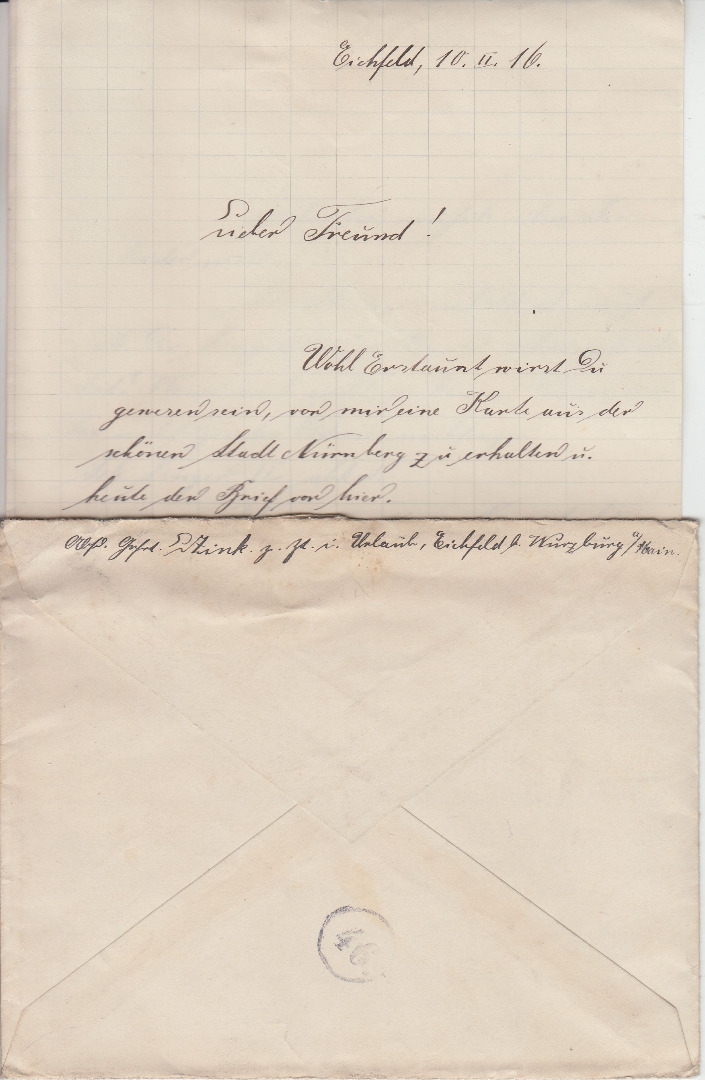 Eichfeld, 10. II. 16.
Lieber Freund!
Wohl Erstaunt wirst Du
gewesen sein, von mir eine Karte aus der
schönen Stadt Nürnberg zu erhalten u.
heute den Brief von hier.
Abs. Gefrt. Zink. z. Zt. i. Urlaub, Eichfeld b. Würzburg a/Main.